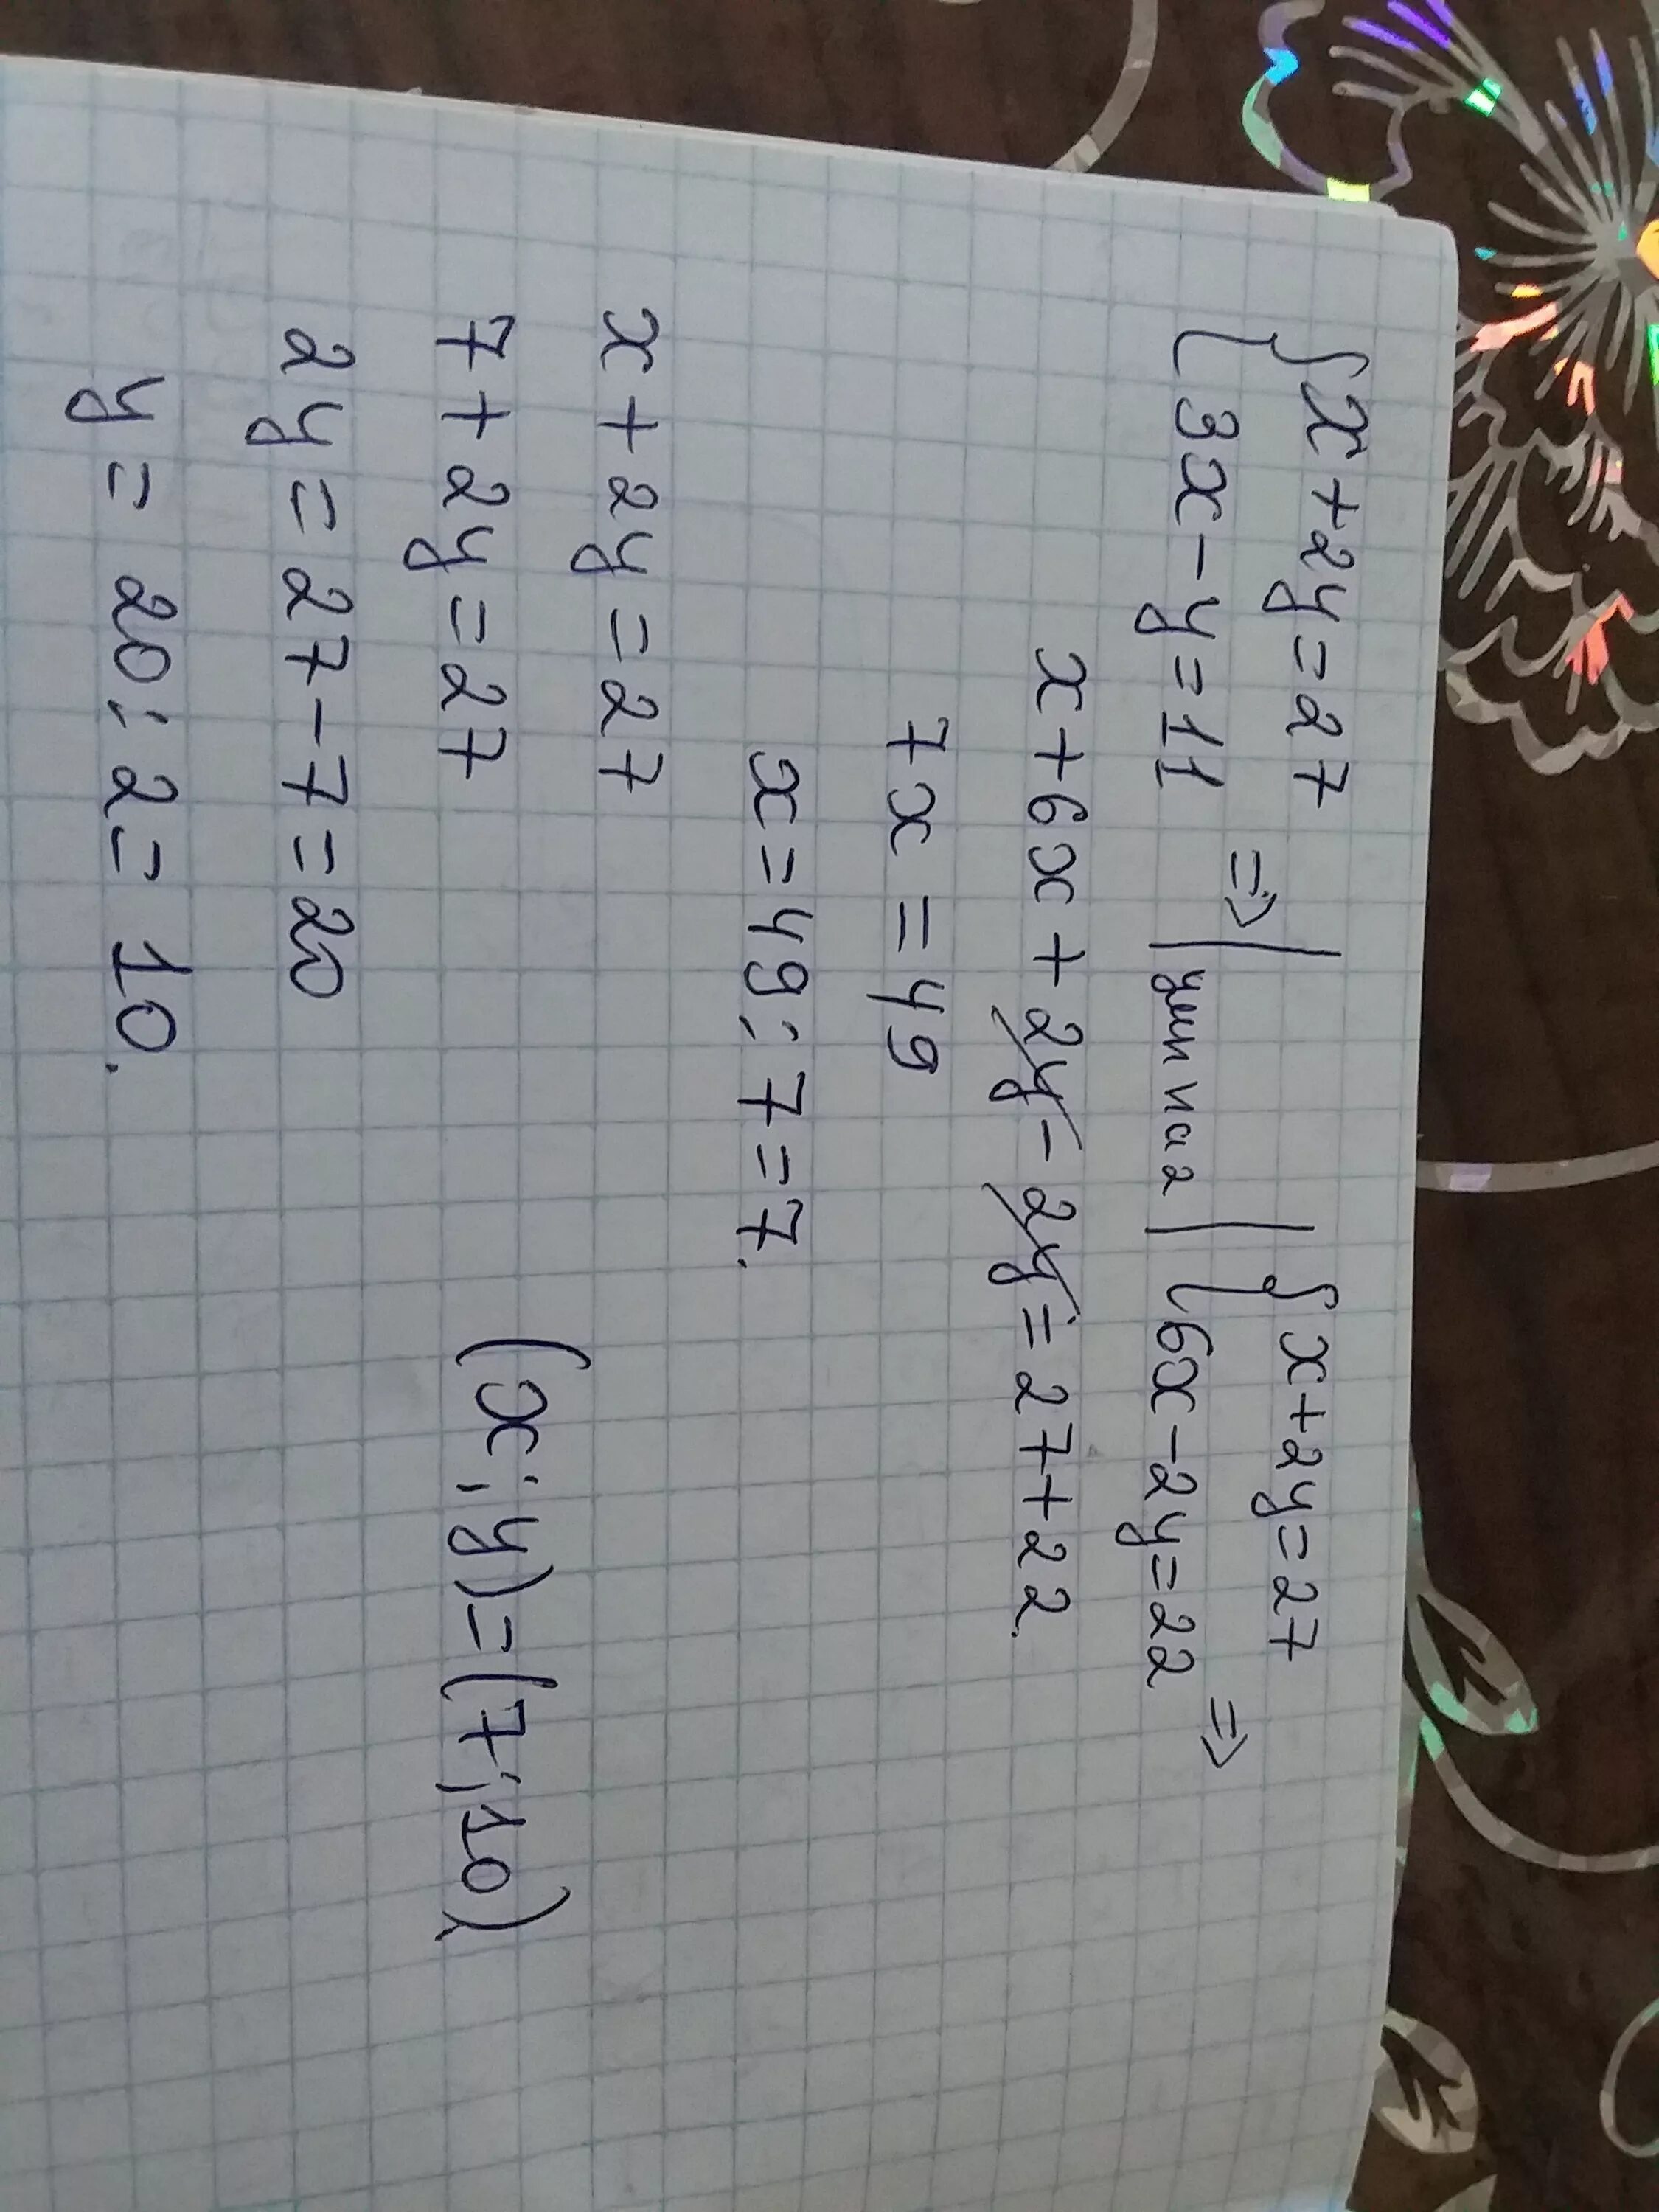 {x+2y=27
{3x-y=11 => |умн на 2| {x+2y=27
{6x-2y=22 =>
x+6x+2y-2y=27+22.
7x=49
x=49:7=7.
x+2y=27
7+2y=27
2y=27-7=20
y=20:2=10.
(x;y)=(7;10)